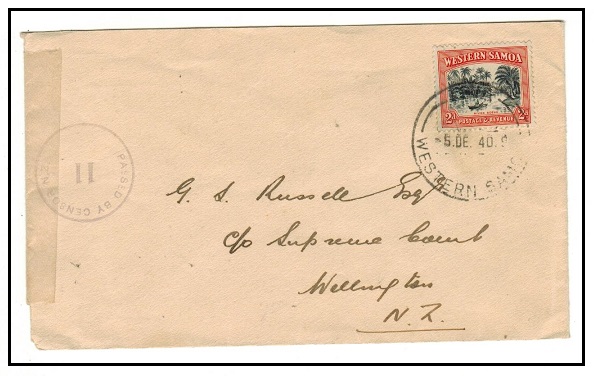 WESTERN SAMOA
2d 2d
POSTAGE & REVENUE
5.DE.40.9
WESTERN SAMO
PASSED BY CENSOR
11
G. S. Russell Esq
c/o Supreme Court
Wellington
N.Z.